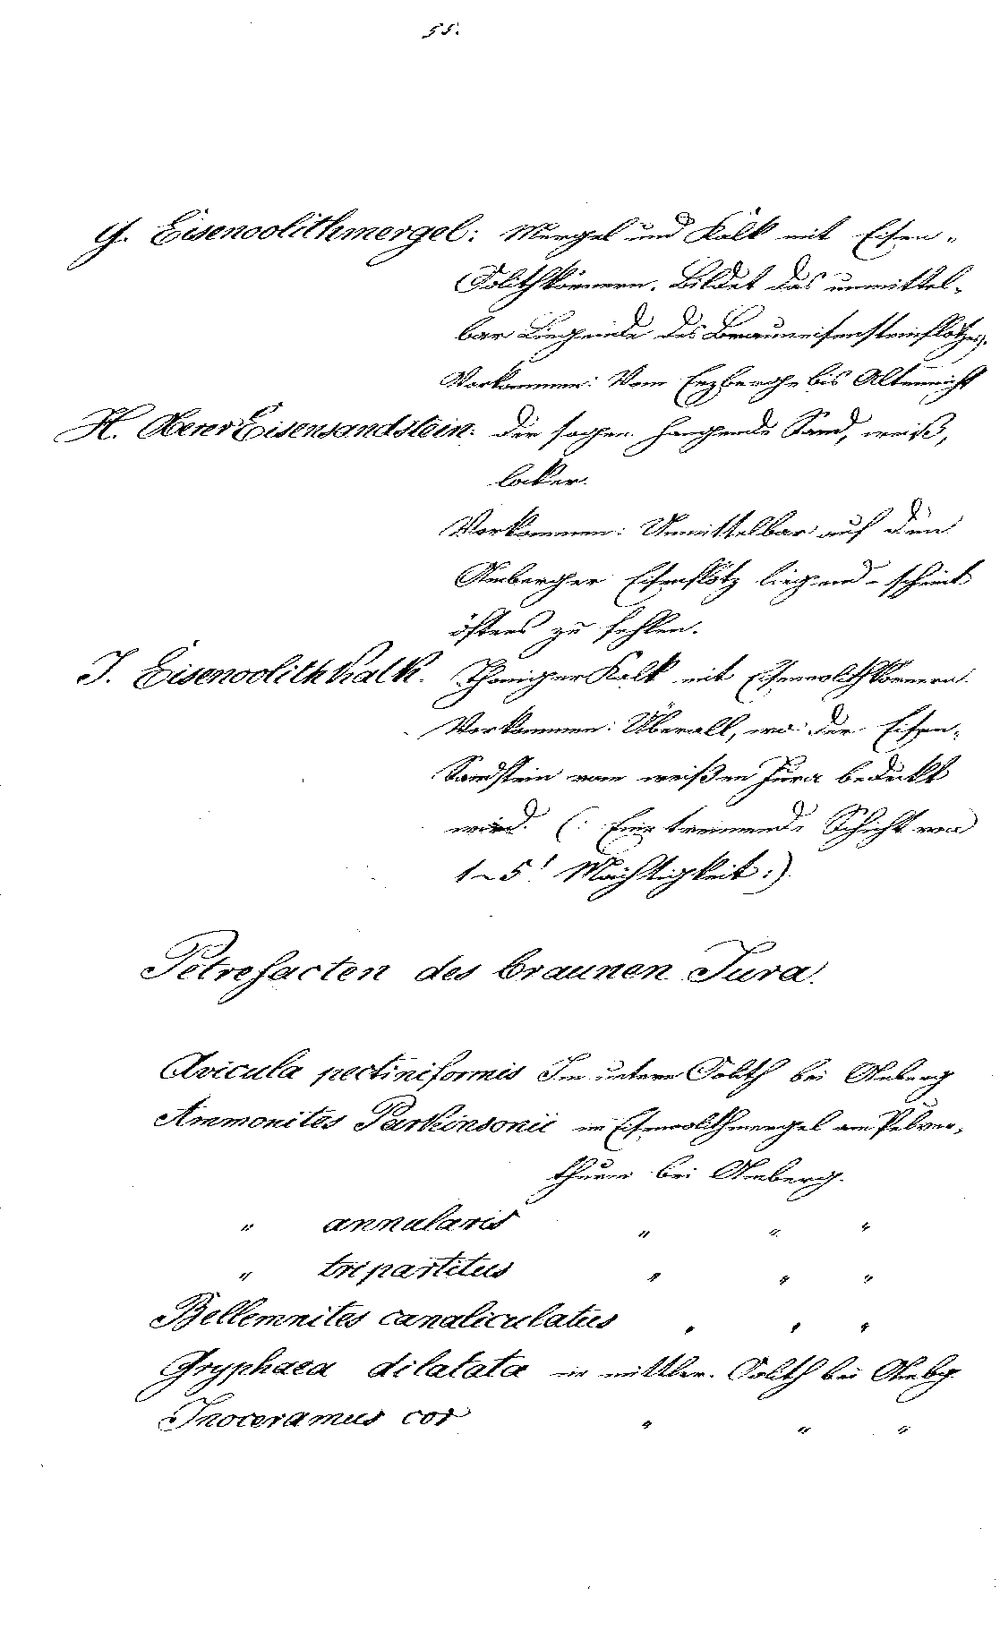 55.
G. Eisenoolithmergel: Mergel und Kalk mit Eisen-
Oolithkörnern. Bildet das unmittel-
bar Liegende des Brauneisensteinflötzes.
Vorkommen: Vom Erzberge bis Altenricht
H. Oberer Eisensandstein: der sogen. hangende Sand, weiß,
locker.
Vorkommen: Unmittelbar auf dem
Amberger Eisenflötz liegend - scheint
öfters zu fehlen.
J. Eisenoolithkalk. Thoniger Kalk mit Eisenoolithkörnern.
Vorkommen: Überall, wo der Eisen-
Sandstein vom weißen Jura bedeckt
wird. (: Eine trennende Schicht von
1-5' Mächtigkeit:)
Petrefacten des braunen Jura.
Avicula pectiniformis Im untern Oolith bei Amberg
Ammonites Parkinsonii im Eisenoolithmergel am Pulver-
thurm bei Amberg.
" annularis " " "
" tripartitus " " "
Bellemnites canaliculatus " " "
Gryphaea dilatata im mittler. Oolith bei Ambg
Inoceramus cor " " "